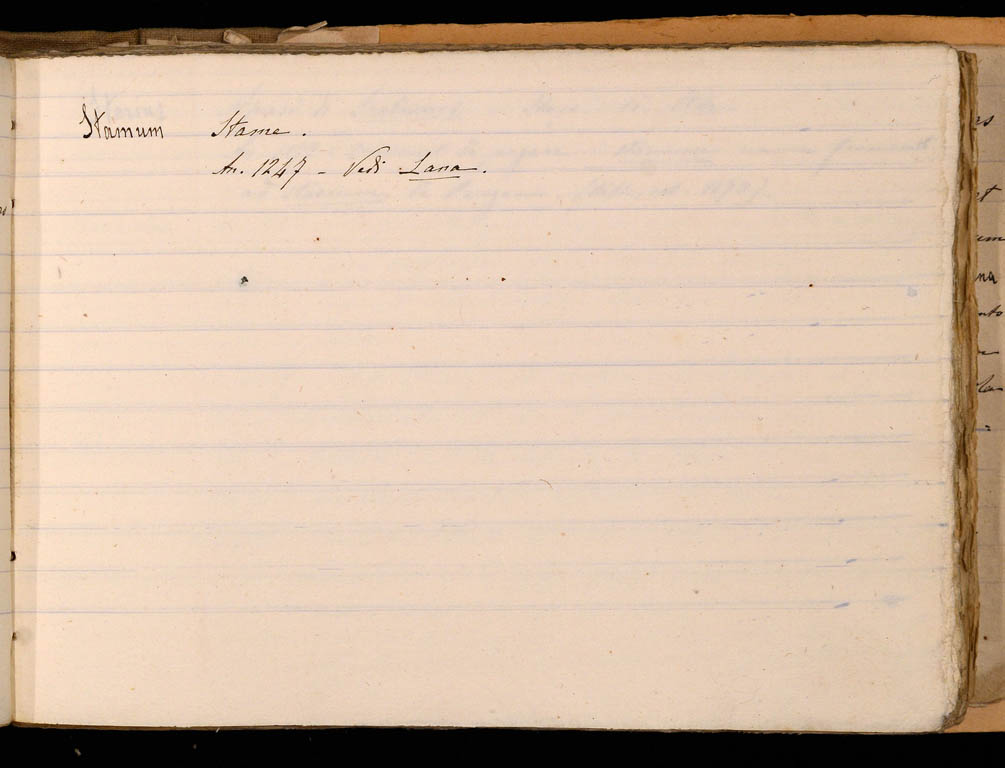 Stamum Stame.
An. 1247 - Vedi Lana.